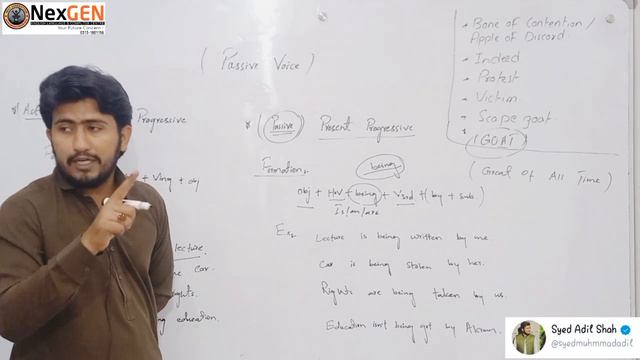 NexGEN
ENGLISH LANGUAGE & COMPUTER CENTRE
Your Future Concern!
( Passive Voice )
• Bone of Contention /
Apple of Discord
• Indeed
• Protest
• Victim
• Scape goat.
• (GOAT)
(Great of All Time)
Progressive
+ Ving + obj
lecture.
car.
education.
* (Passive) Present Progressive
being
Formation,
obj + HuV + being + V3rd + (by + sub)
Is/am/are
Ex,
Lecture is being written by me
Car is being stolen by her.
Rights are being taken by us.
Education isn't being got by Akram.
Syed Adil Shah
@syedmuhmmadadil